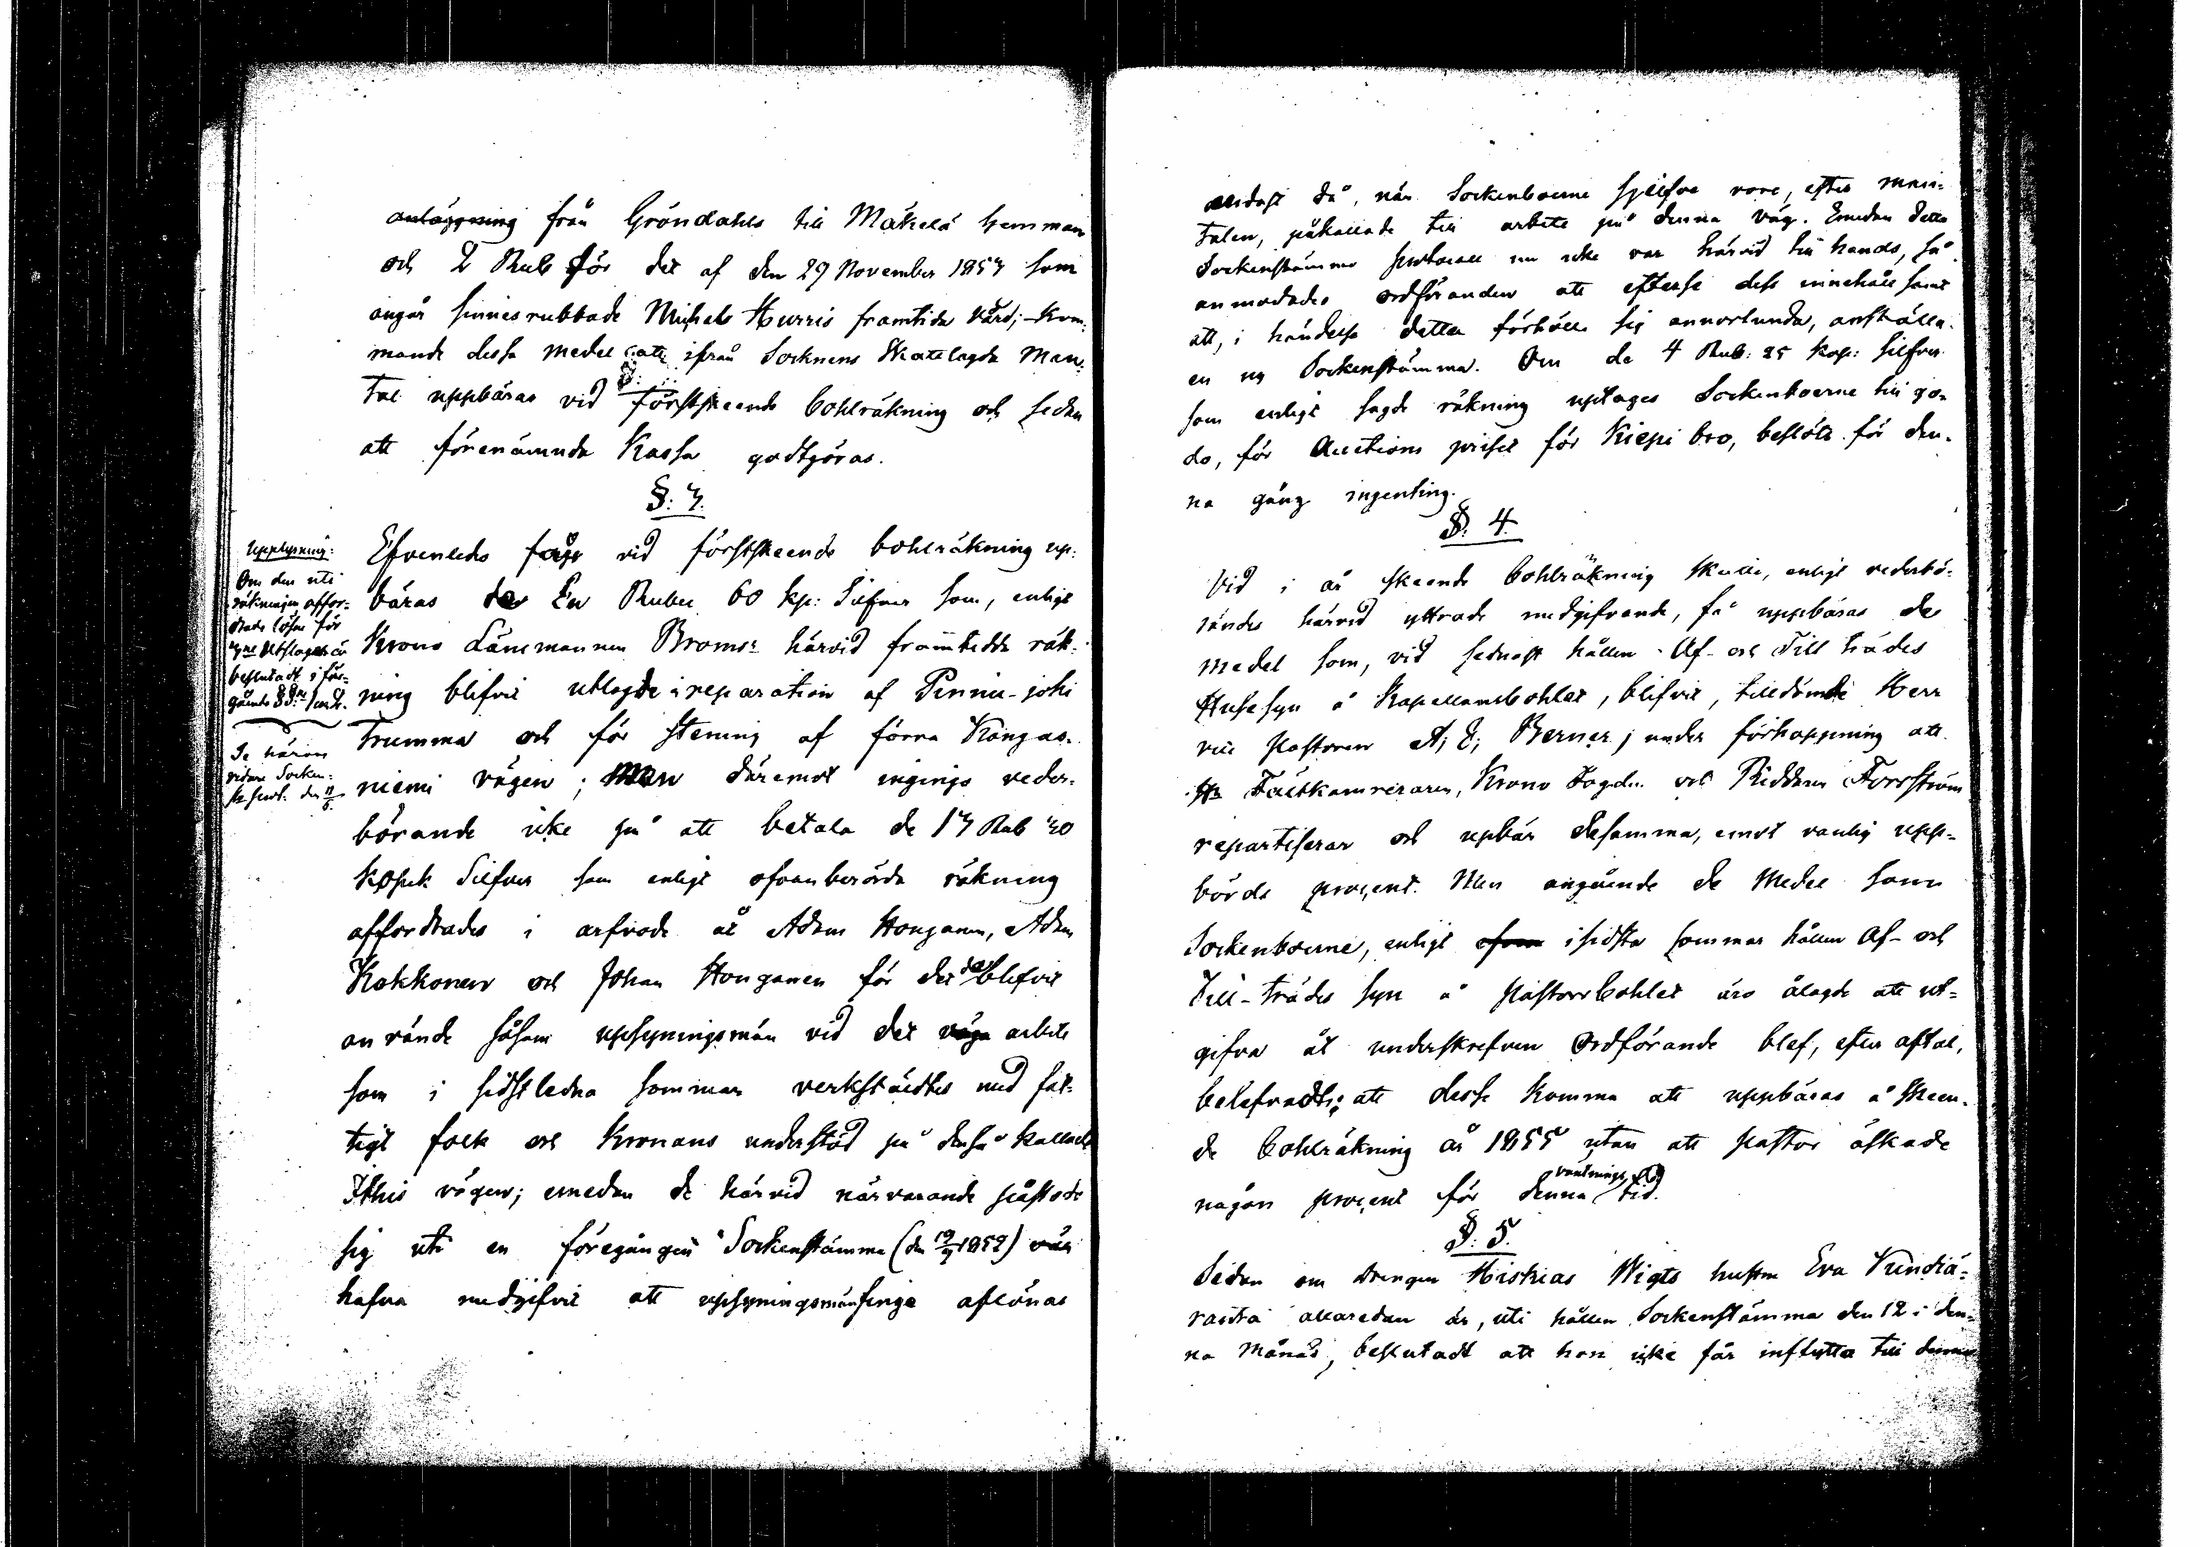 anläggning från Gröndahls till Mäkelä hemman
och 2 Rub för det af den 29 November 1853 som
angår sinnesrubbade Michels Hurris framtida vård; kom-
mande dessa medel att ifrån Socknens Skatelagda Man-
tal uppbäras vid förstskeende bohlräkning och sedan
att förenämnda Kassa godtgöras.
§. 3.
Efvenledes får vid förstskeende bohlräkning up-
bäras de En Rubel 60 kp: Silfver som, enligt
Krono Länsmannen Broms: härvid framtedde räk-
ning blifvit utlagde i reparation af Pennu-joki
Trumma och för stening af förra Kangas-
niemi vägen; Men däremot ingingo veder-
börande icke på att betala de 13 Rub 30
kopek Silfver som enligt ofvanberörda räkning
affordrades i arfvode åt Adam Honganen, Adam
Kokkonen och Johan Honganen för det de blifvit
använde såsom upsyningsmän vid det väga arbete
som i sidstledna sommar verkställdtes med fat-
tigt folk och Kronans understöd på den så kallade
Ithis vägen; emedan de härvid närvarande påstode
sig uti en föregången Sockenstämma (den 19/3 1852)
hafva medgifvit att upsyningsmän finge aflönas
Upplysning:
Om den uti
räkningen affor-
drade lösen för
beslutadt i för-
gående §§:
Se härom
vidare Socken-
endast då, när Sockenboerne sjelfve vore, efter man-
talen, påkallade till arbete på denna väg. Emedan detta
Sockenstämmo protocoll nu icke var härvid till hands, så
anmodades ordföranden att efterse dess innehåll samt
att, i händelse detta förhölle sig annorlunda, anställa
en ny Sockenstämma. Om de 4 Rub: 25 kop: Silfver
som enligt sagde räkning uptages Sockenboerne till go-
do, för Auctions priset för Kiepi bro, beslöts för den-
na gång ingenting.
§. 4.
Vid i år skeende bohlräkning skulle, enligt vederbö-
randes härvid yttrade medgifvande, få uppbäras de
medel som, vid sednast hållen Af- och Till trädes
Husesyn å Kapellansbohlet, blifvit tilldömde Herr
vice pastoren A; E; Berner; under förhoppning att
Hr Fältkamreraren, Krono Fogden och Riddaren Forsström
repartiserar och upbär desamma, emot vanlig upp-
börds procent. Men angående de Medel som
Sockenboerne, enligt i sidsta sommar hållen Af- och
Till-trädes syn å pastorsbohlet äro ålagde att ut-
gifva åt underskrefven ordförande blef, efter aftal,
belefvadt; att desse komma att uppbäras å skeen-
de bohlräkning år 1855 utan att pastor äskade
någon procent för denna väntnings tid.
§. 5.
Sedan om drengen Hiskias Wigts hustru Eva Kundiä-
rantra allaredan är, uti hållen Sockenstämma den 12 i den-
na månad, beslutadt att hon icke får inflytta till denna